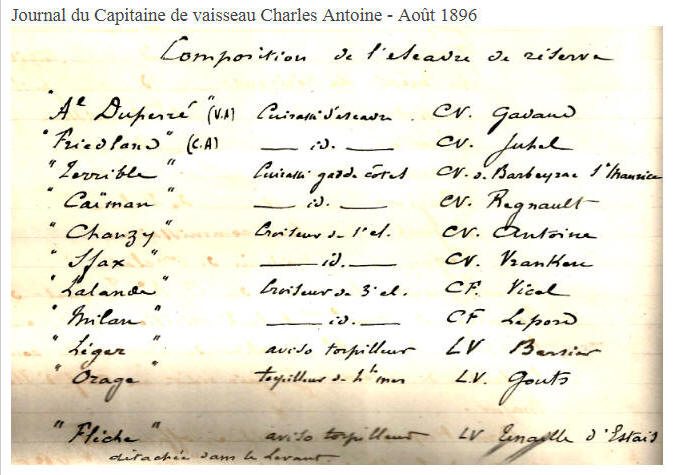 Journal du Capitaine de vaisseau Charles Antoine - Août 1896
Composition de l'escadre de réserve
"Al Duperré" (V.A) Cuirassé d'escadre CV. Gadaud
"Friedland" (C.A) — id. — CV. Juhel
"Terrible" Cuirassé garde côtes CV. de Barbeyrac St Maurice
"Caïman" — id. — CV. Regnault
"Chanzy" Croiseur de 1e cl. CV. Antoine
"Sfax" — id. — CV. Vranken
"Lalande" Croiseur de 3e cl. CF. Vicel
"Milan" — id. — CF Lepord
"Léger" aviso torpilleur LV Bersier
"Orage" torpilleur de hte mer L.V. Gouts
"Flèche" aviso torpilleur LV d'Estais
détachée dans le Levant.